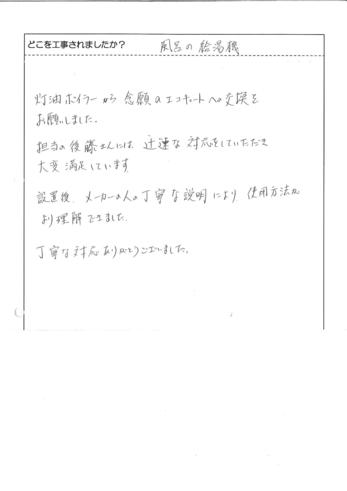 どこを工事されましたか？ 風呂の給湯機
灯油ボイラーから念願のエコキュートへの交換を
お願いしました。
担当の後藤さんには 迅速な対応をしていただき
大変満足しています
設置後 メーカーの人の丁寧な説明により 使用方法が
より理解できました。
丁寧な対応ありがとうございました。